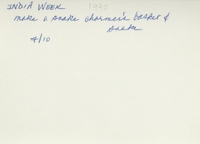 INDIA WEEK 1975
make a snake charmer's basket &
snake
4/10